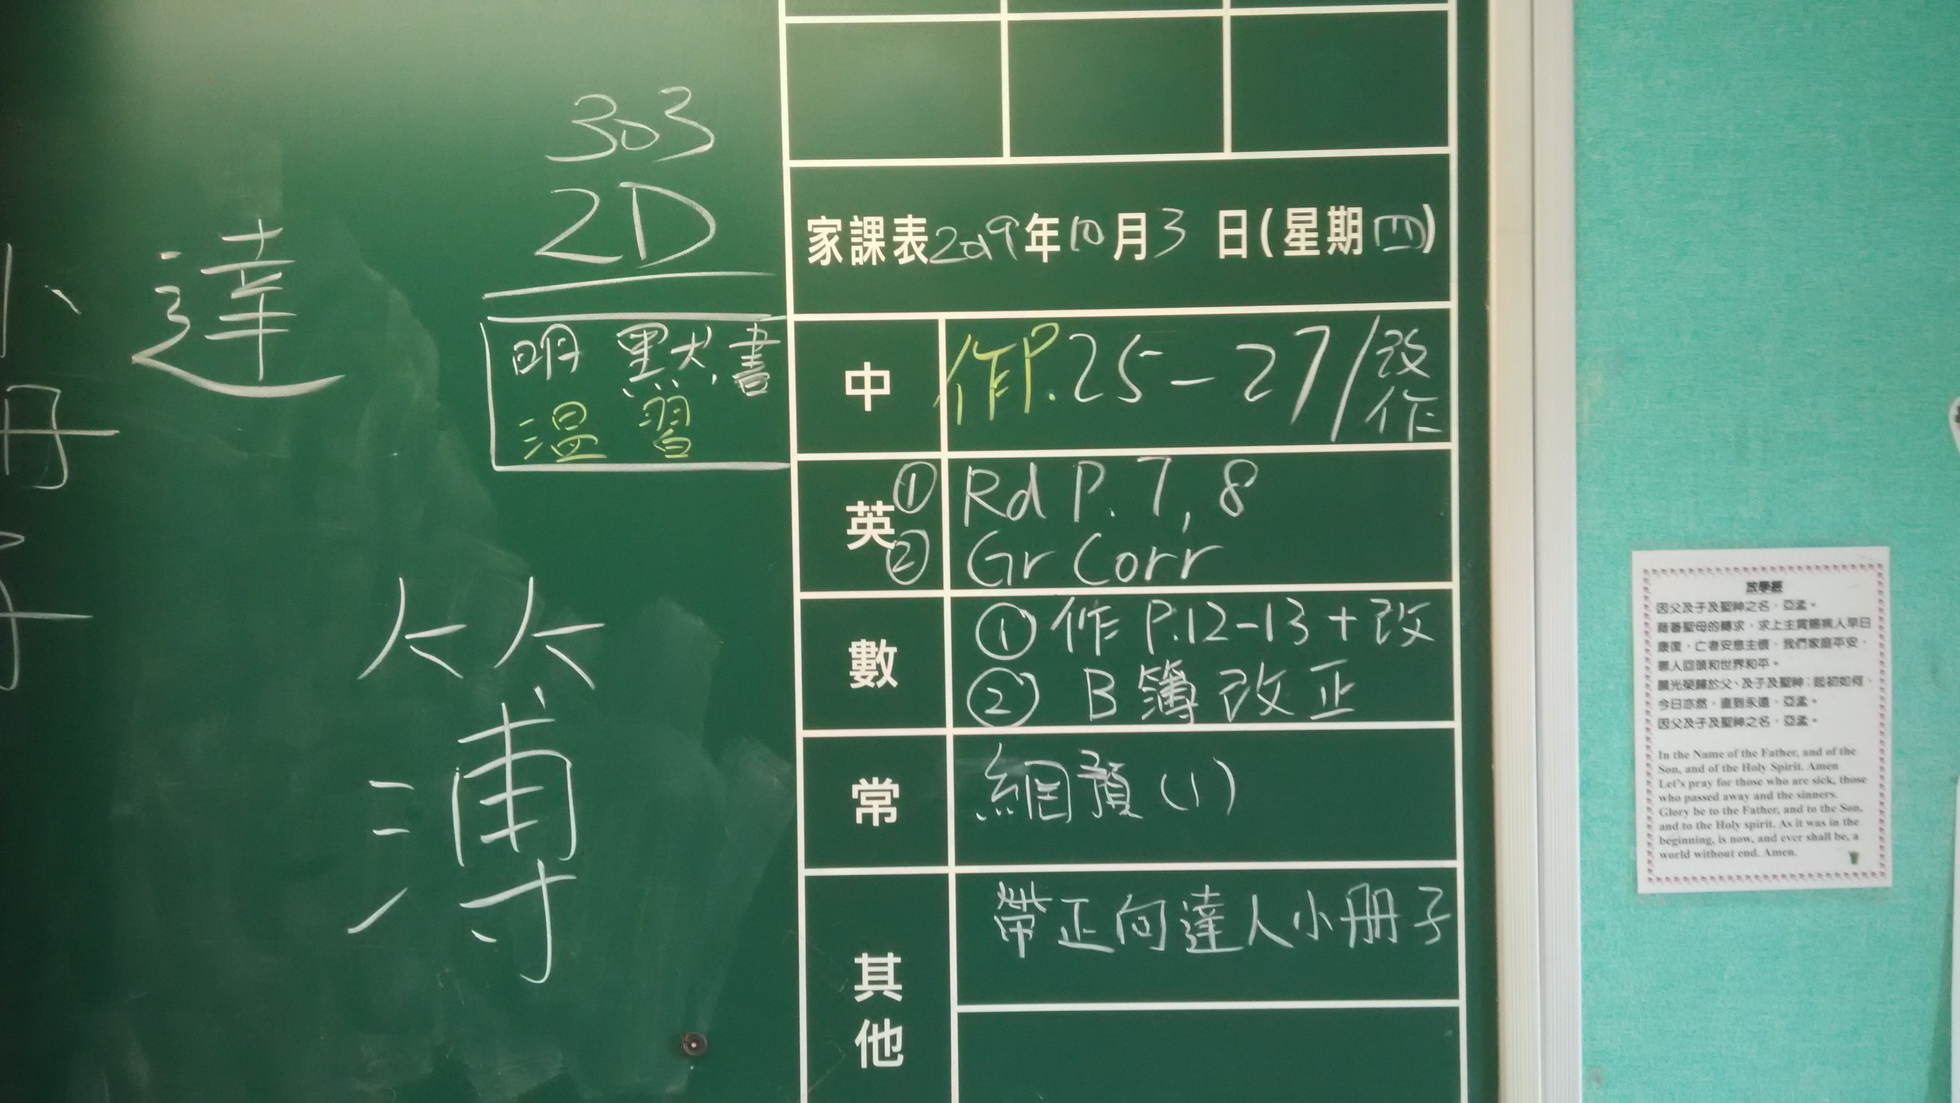 達
小
冊
子
303
2D
明 默書
溫習
簿
家課表2019年10月3日(星期四)
中
作P.25-27/改作
英
① Rd P.7, 8
② Gr Corr
數
① 作 P.12-13+改
② B簿改正
常
網預(1)
其他
帶正向達人小冊子
放學經
因父及子及聖神之名，亞孟。
藉著聖母的轉求，求上主賞賜病人早日
康復，亡者安息主懷，我們家庭平安，
罪人回頭和世界和平。
願光榮歸於父、及子及聖神；起初如何，
今日亦然，直到永遠，亞孟。
因父及子及聖神之名，亞孟。
In the Name of the Father, and of the
Son, and of the Holy Spirit. Amen
Let's pray for those who are sick, those
who passed away and the sinners.
Glory be to the Father, and to the Son,
and to the Holy spirit. As it was in the
beginning, is now, and ever shall be, a
world without end. Amen.